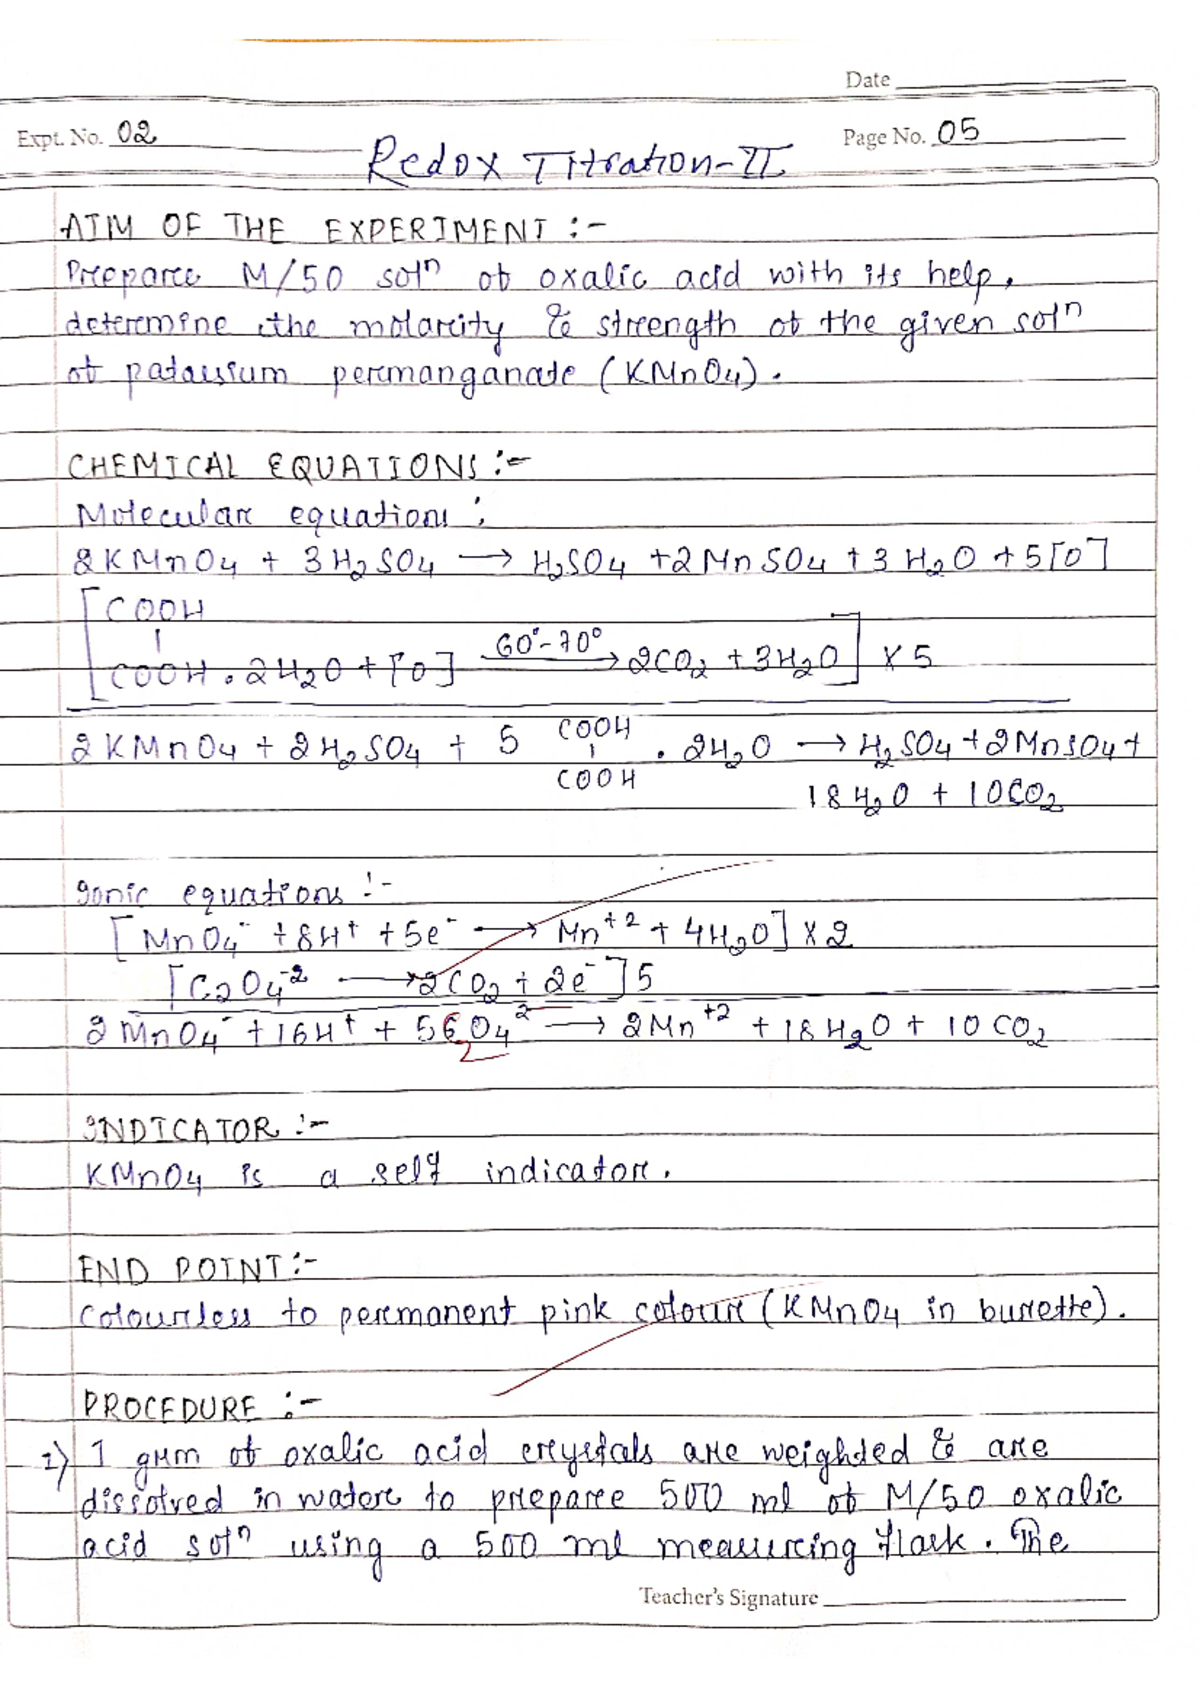 Date
Expt. No. 02
Page No. 05
Redox Titration-II
AIM OF THE EXPERIMENT :-
Prepare M/50 solⁿ of oxalic acid with its help,
determine the molarity & strength of the given solⁿ
of patassium permanganate (KMnO₄).
CHEMICAL EQUATIONS :-
Molecular equation :
2KMnO₄ + 3H₂SO₄ → H₂SO₄ + 2MnSO₄ + 3H₂O + 5[O]
[COOH
|
COOH . 2H₂O + [O] 60°-70° → 2CO₂ + 3H₂O] × 5
2KMnO₄ + 2H₂SO₄ + 5 COOH | COOH . 2H₂O → H₂SO₄ + 2MnSO₄ +
18H₂O + 10CO₂
Ionic equations :-
[MnO₄⁻ + 8H⁺ + 5e⁻ → Mn⁺² + 4H₂O] × 2
[C₂O₄⁻² → 2CO₂ + 2e⁻] 5
2MnO₄⁻ + 16H⁺ + 5C₂O₄²⁻ → 2Mn⁺² + 18H₂O + 10CO₂
INDICATOR :-
KMnO₄ is a self indicator.
END POINT :-
Colourless to permanent pink colour (KMnO₄ in burette).
PROCEDURE :-
1) 1 gram of oxalic acid crystals are weighted & are
dissolved in water to prepare 500 ml of M/50 oxalic
acid solⁿ using a 500 ml measuring flask. The
Teacher's Signature